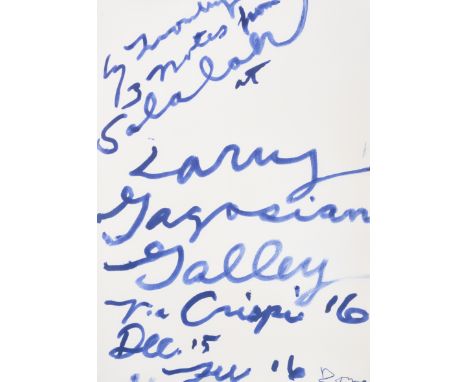 Cy Twombly
3 Notes from
Salalah
at
Larry
Gagosian
Galley
Via Crispi '16
Dec. '15
Fev '16 Roma